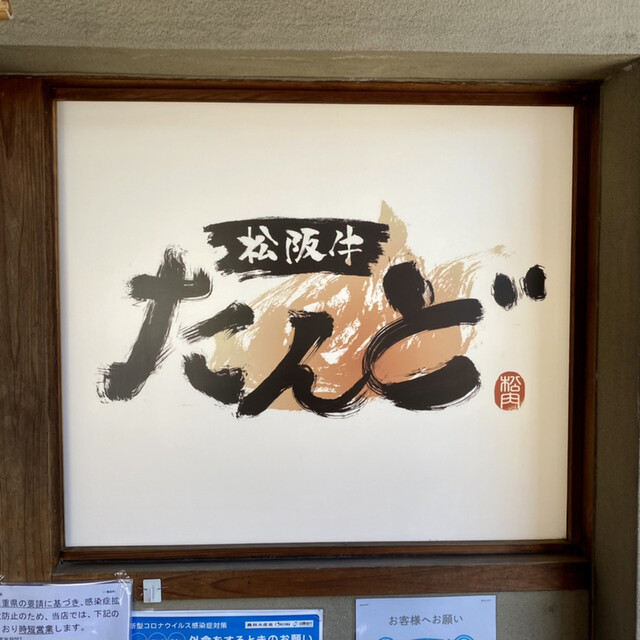 松阪牛
たんど
松内
重県の要請に基づき、感染症拡
防止のため、当店では、下記の
おり時短営業します。
新型コロナウイルス感染症対策
外食をするときのお願い
お客様へお願い